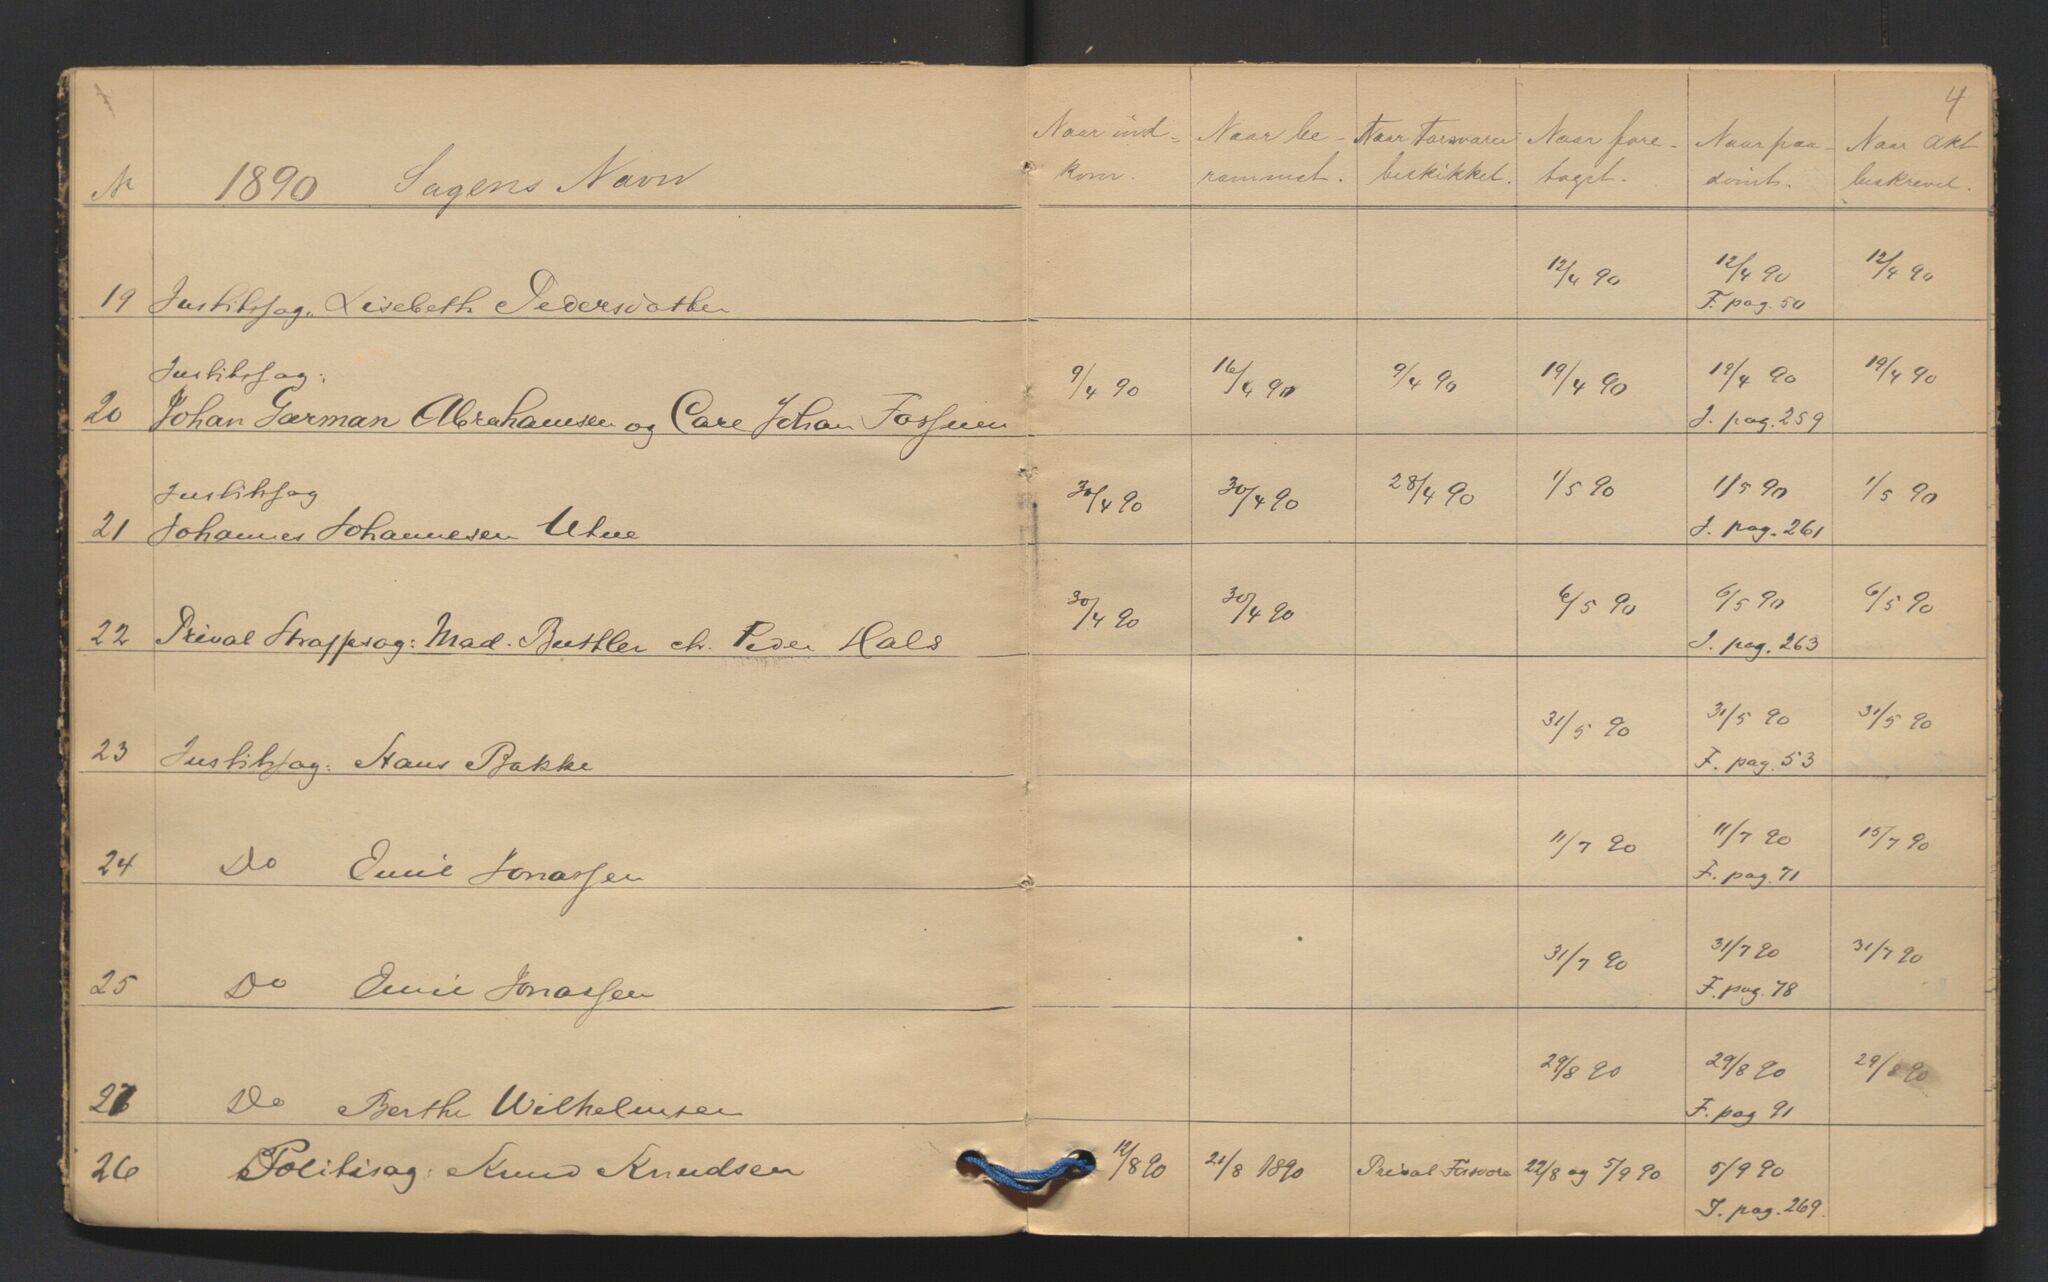 4
No 1890 Sagens Navn
Naar ind-
kom.
Naar be-
rammet.
Naar Forsvarer
beskikket.
Naar fore-
taget.
Naar paa-
dømt.
Naar Akt
beskrevet.
19 Justitssag. Lisebeth Pedersdatter
12/4 90
12/4 90
F. pag. 50
12/4 90
Justitssag:
20 Johan Garman Abrahamsen og Carl Johan
9/4 90
16/4 90
9/4 90
19/4 90
19/4 90
J. pag. 259
19/4 90
Justitssag
21 Johannes Johannesen Utne
30/4 90
30/4 90
28/4 90
1/5 90
1/5 90
J. pag. 261
1/5 90
22 Privat Straffesag: Mad. Buttler ctr. Peder Hals
30/4 90
30/4 90
6/5 90
6/5 90
J. pag. 263
6/5 90
23 Justitssag: Hans Bakke
31/5 90
31/5 90
F. pag. 53
31/5 90
24 Do Emil Jonassen
11/7 90
11/7 90
F. pag. 71
15/7 90
25 Do Emil Jonassen
31/7 90
31/7 90
F. pag. 78
31/7 90
27 Do Berthe Wilhelmsen
29/8 90
29/8 90
F. pag 91
29/8 90
26 Politisag: Knud Knudsen
12/8 90
21/8 1890
Privat Forsvarer
22/8 og 5/9 90
5/9 90
J. pag. 269.